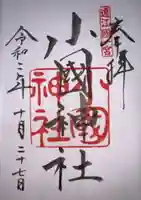 奉拝
遠江國一宮
小國神社
小國神社
令和二年十月二十七日